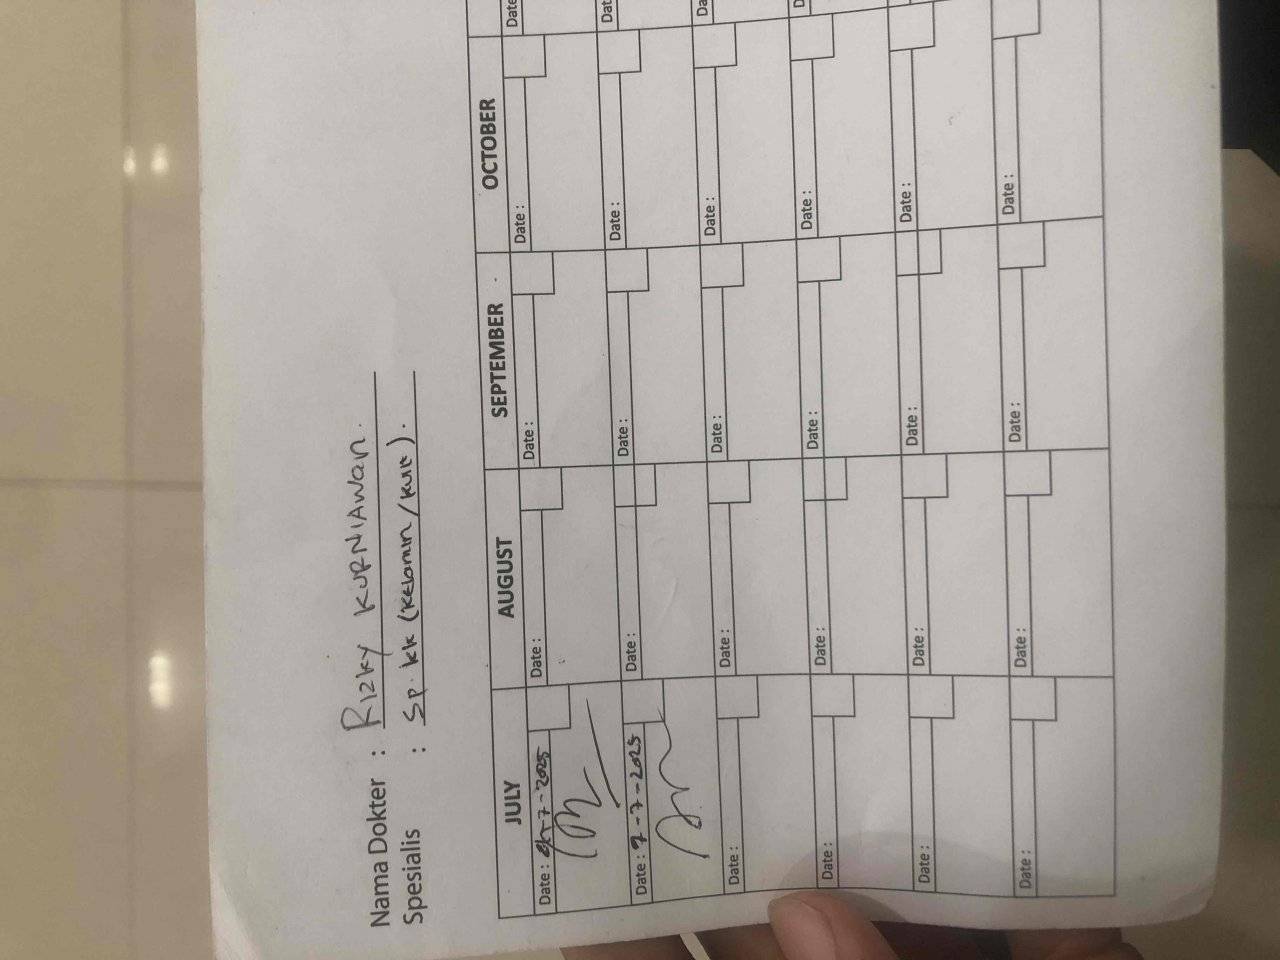 Nama Dokter : RIZKY KURNIAWAN.
Spesialis : Sp. KK (Kelamin/Kulit).
JULY AUGUST SEPTEMBER OCTOBER
Date : 7-2025 Date : Date : Date : Date
Date : 9-7-2025 Date : Date : Date : Dat
Date : Date : Date : Date : Da
Date : Date : Date : Date : D
Date : Date : Date : Date :
Date : Date : Date : Date :